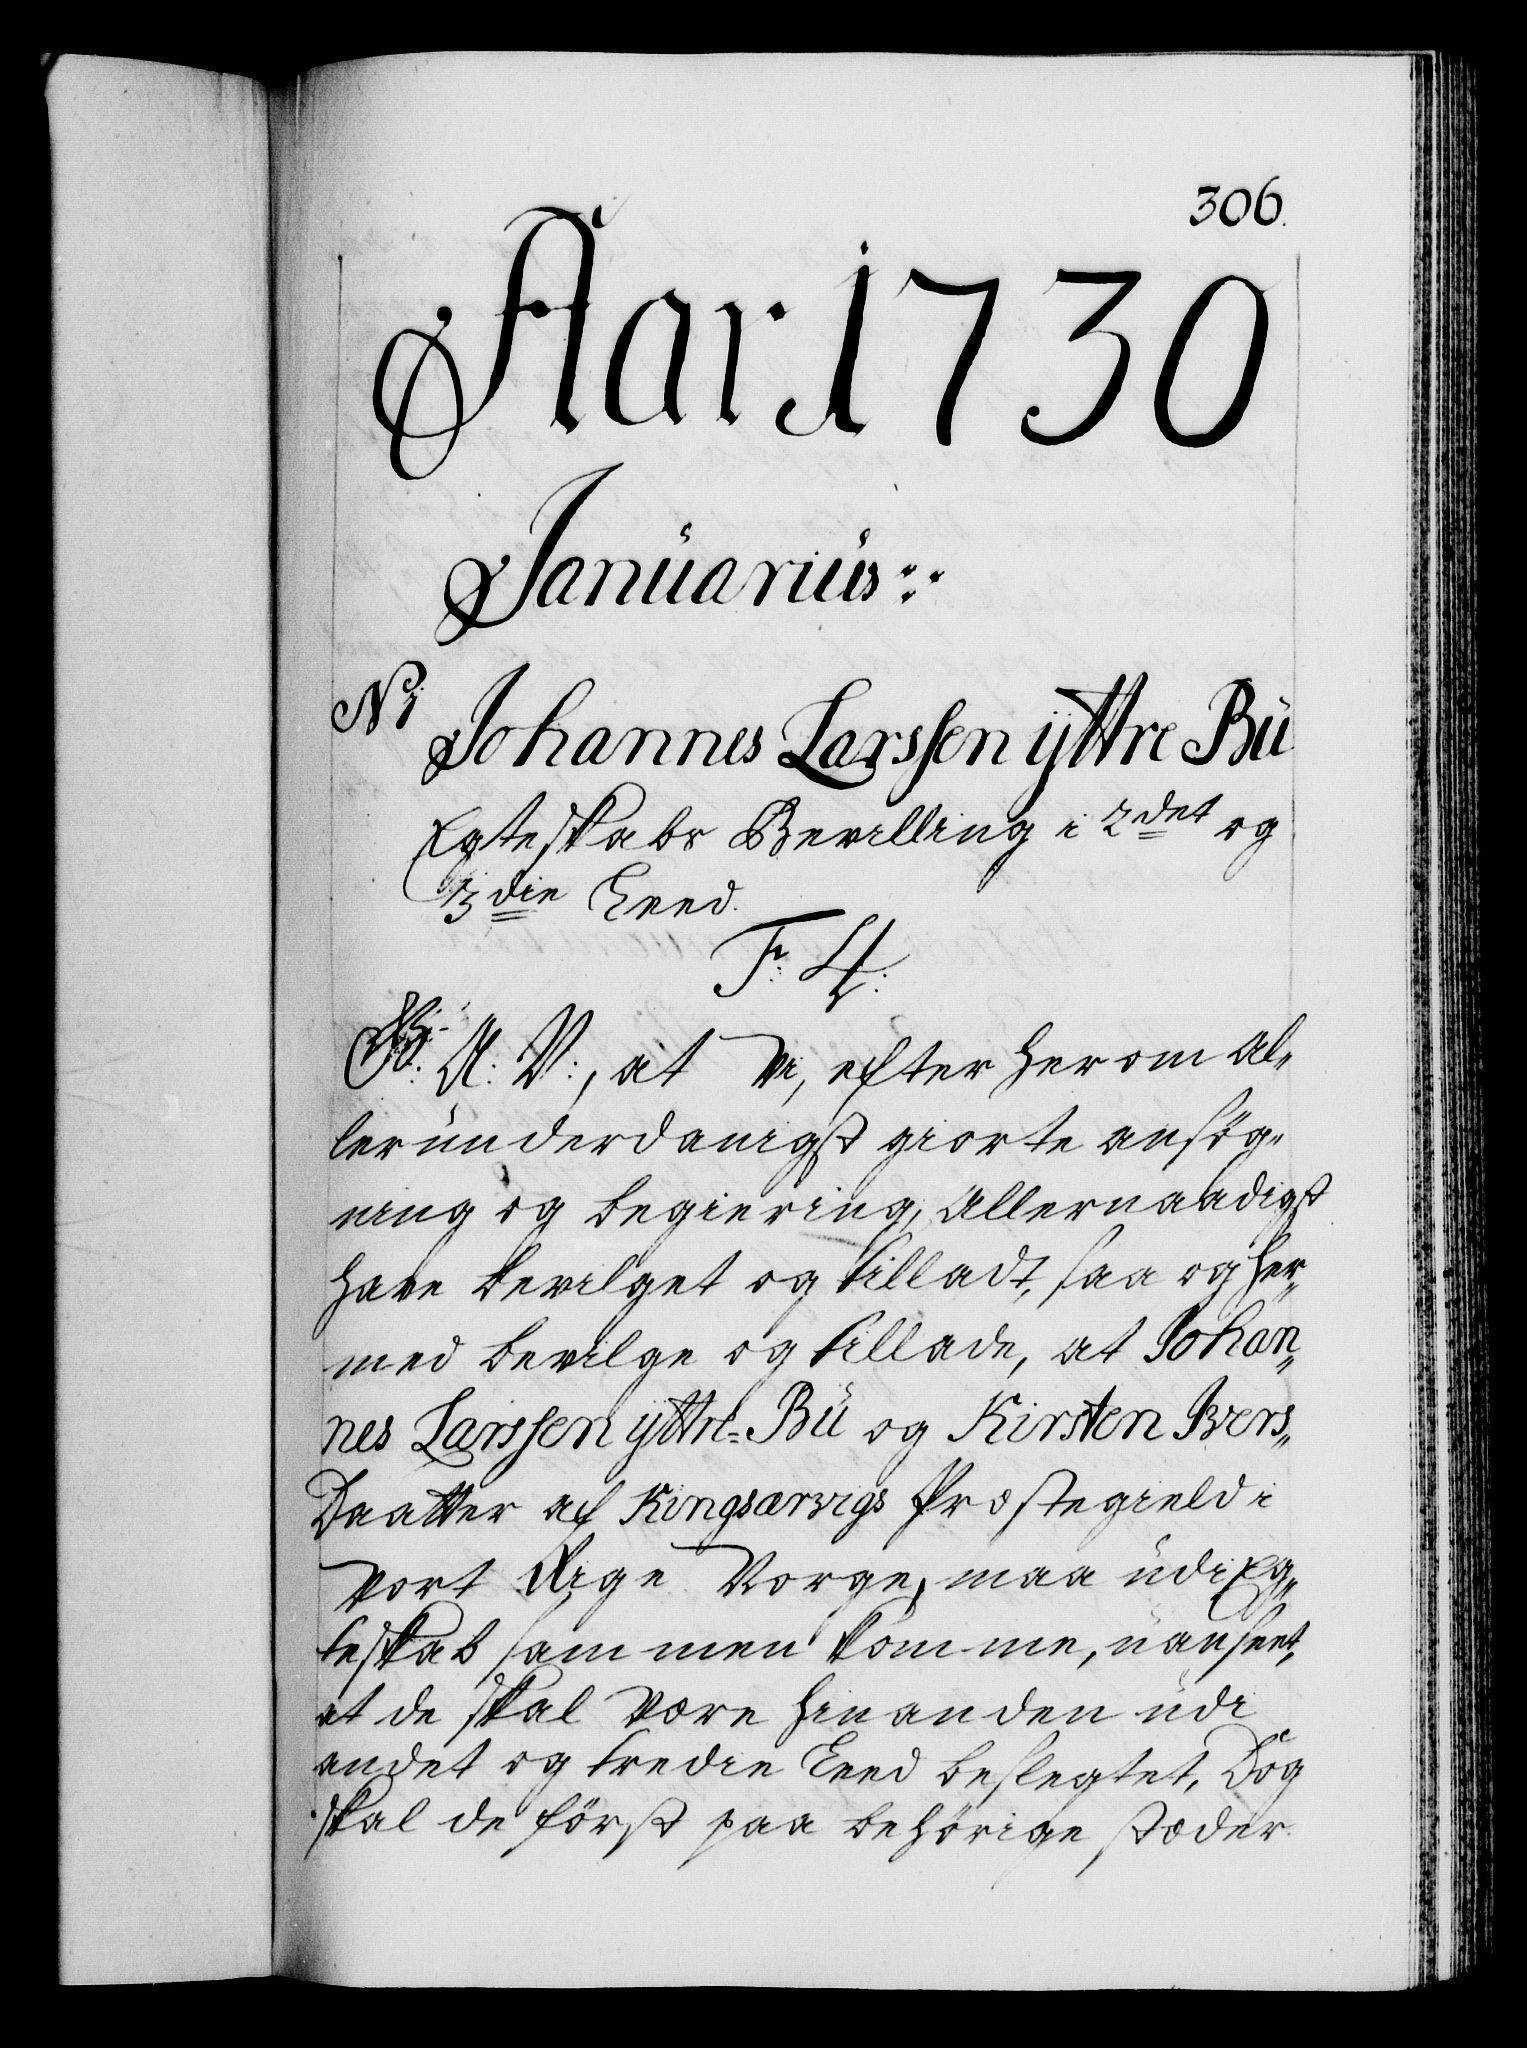 306.
Aar. 1730
Januarius:
N1 Johannes Larssen yttre Bü
Egteskabs Bevilling i 2det og
3die Leed.
F: 4:
G: A: V:, at Vi, efter herom al„
lerunderdanigst giorte ansøg„
ning og begiering, allernaadigst
have bevilget og tilladt, saa og her„
med bevilge og tillade, at Johan„
nes Larssen yttre-Bü og Kirsten Ivers„
Daatter af Kingsærvigs Præstegield i
Vort Rige Norge, maa udi Eg„
teskab sammen komme, uanseet,
at de skal være hinanden udi
andet og tredie Leed beslegtet, Dog
skal de først paa behörige stæder